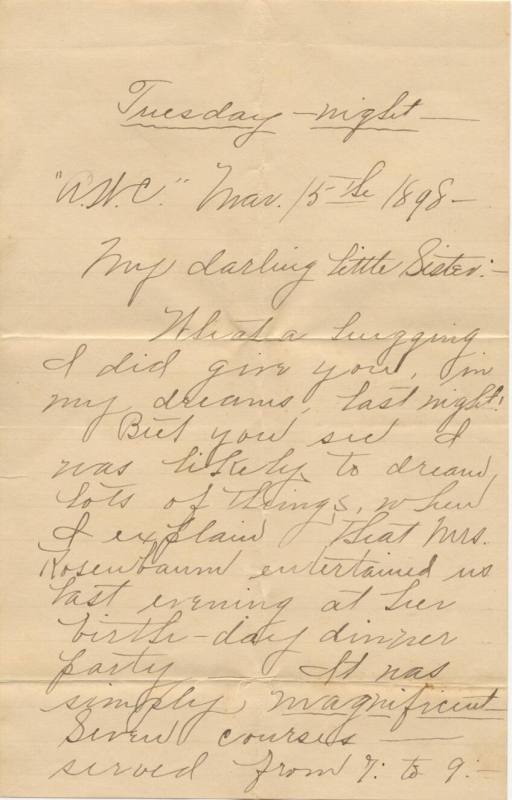 Tuesday - night -
"A.W.C." Mar. 15th 1898 -
My darling little Sister: -
What a hugging
I did give you, in
my dreams, last night!
But you see I
was likely to dream,
lots of things, when
I explain that Mrs.
Rosenbaum entertained us
last evening at her
birth-day dinner
party It was
simply magnificent
Seven courses -
served from 7: to 9: -